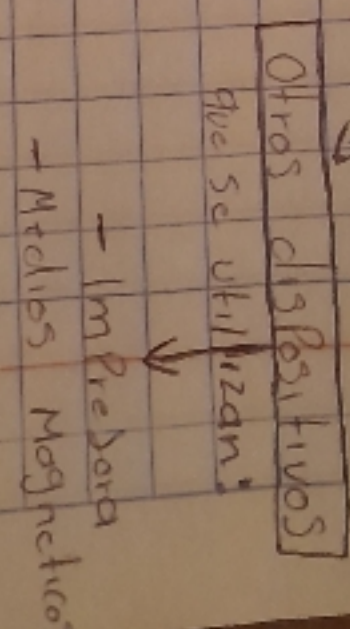 Otros disPositivos
que se utilizan:
- ImPresora
- Medios Magneticos